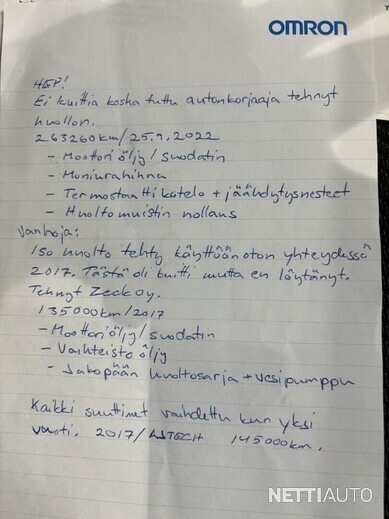 OMRON
HEP!
Ei kuittia koska tuttu autonkorjaaja tehnyt
huollon.
263260km/25.9.2022
- Moottoriöljy/suodatin
- Moniurahihna
- Termostaattikotelo + jäähdytysnesteet
- Huoltomuistin nollaus
Vanhoja:
Iso huolto tehty käyttöönoton yhteydessä
2017. Tästä oli kuitti mutta en löytänyt.
Tehnyt Zeck oy.
135000km/2017
- Moottoriöljy/suodatin
- Vaihteistoöljy
- Jakopään huoltosarja + vesipumppu
Kaikki suuttimet vaihdettu kun yksi
vuoti. 2017/ 145000km.
NETTIAUTO